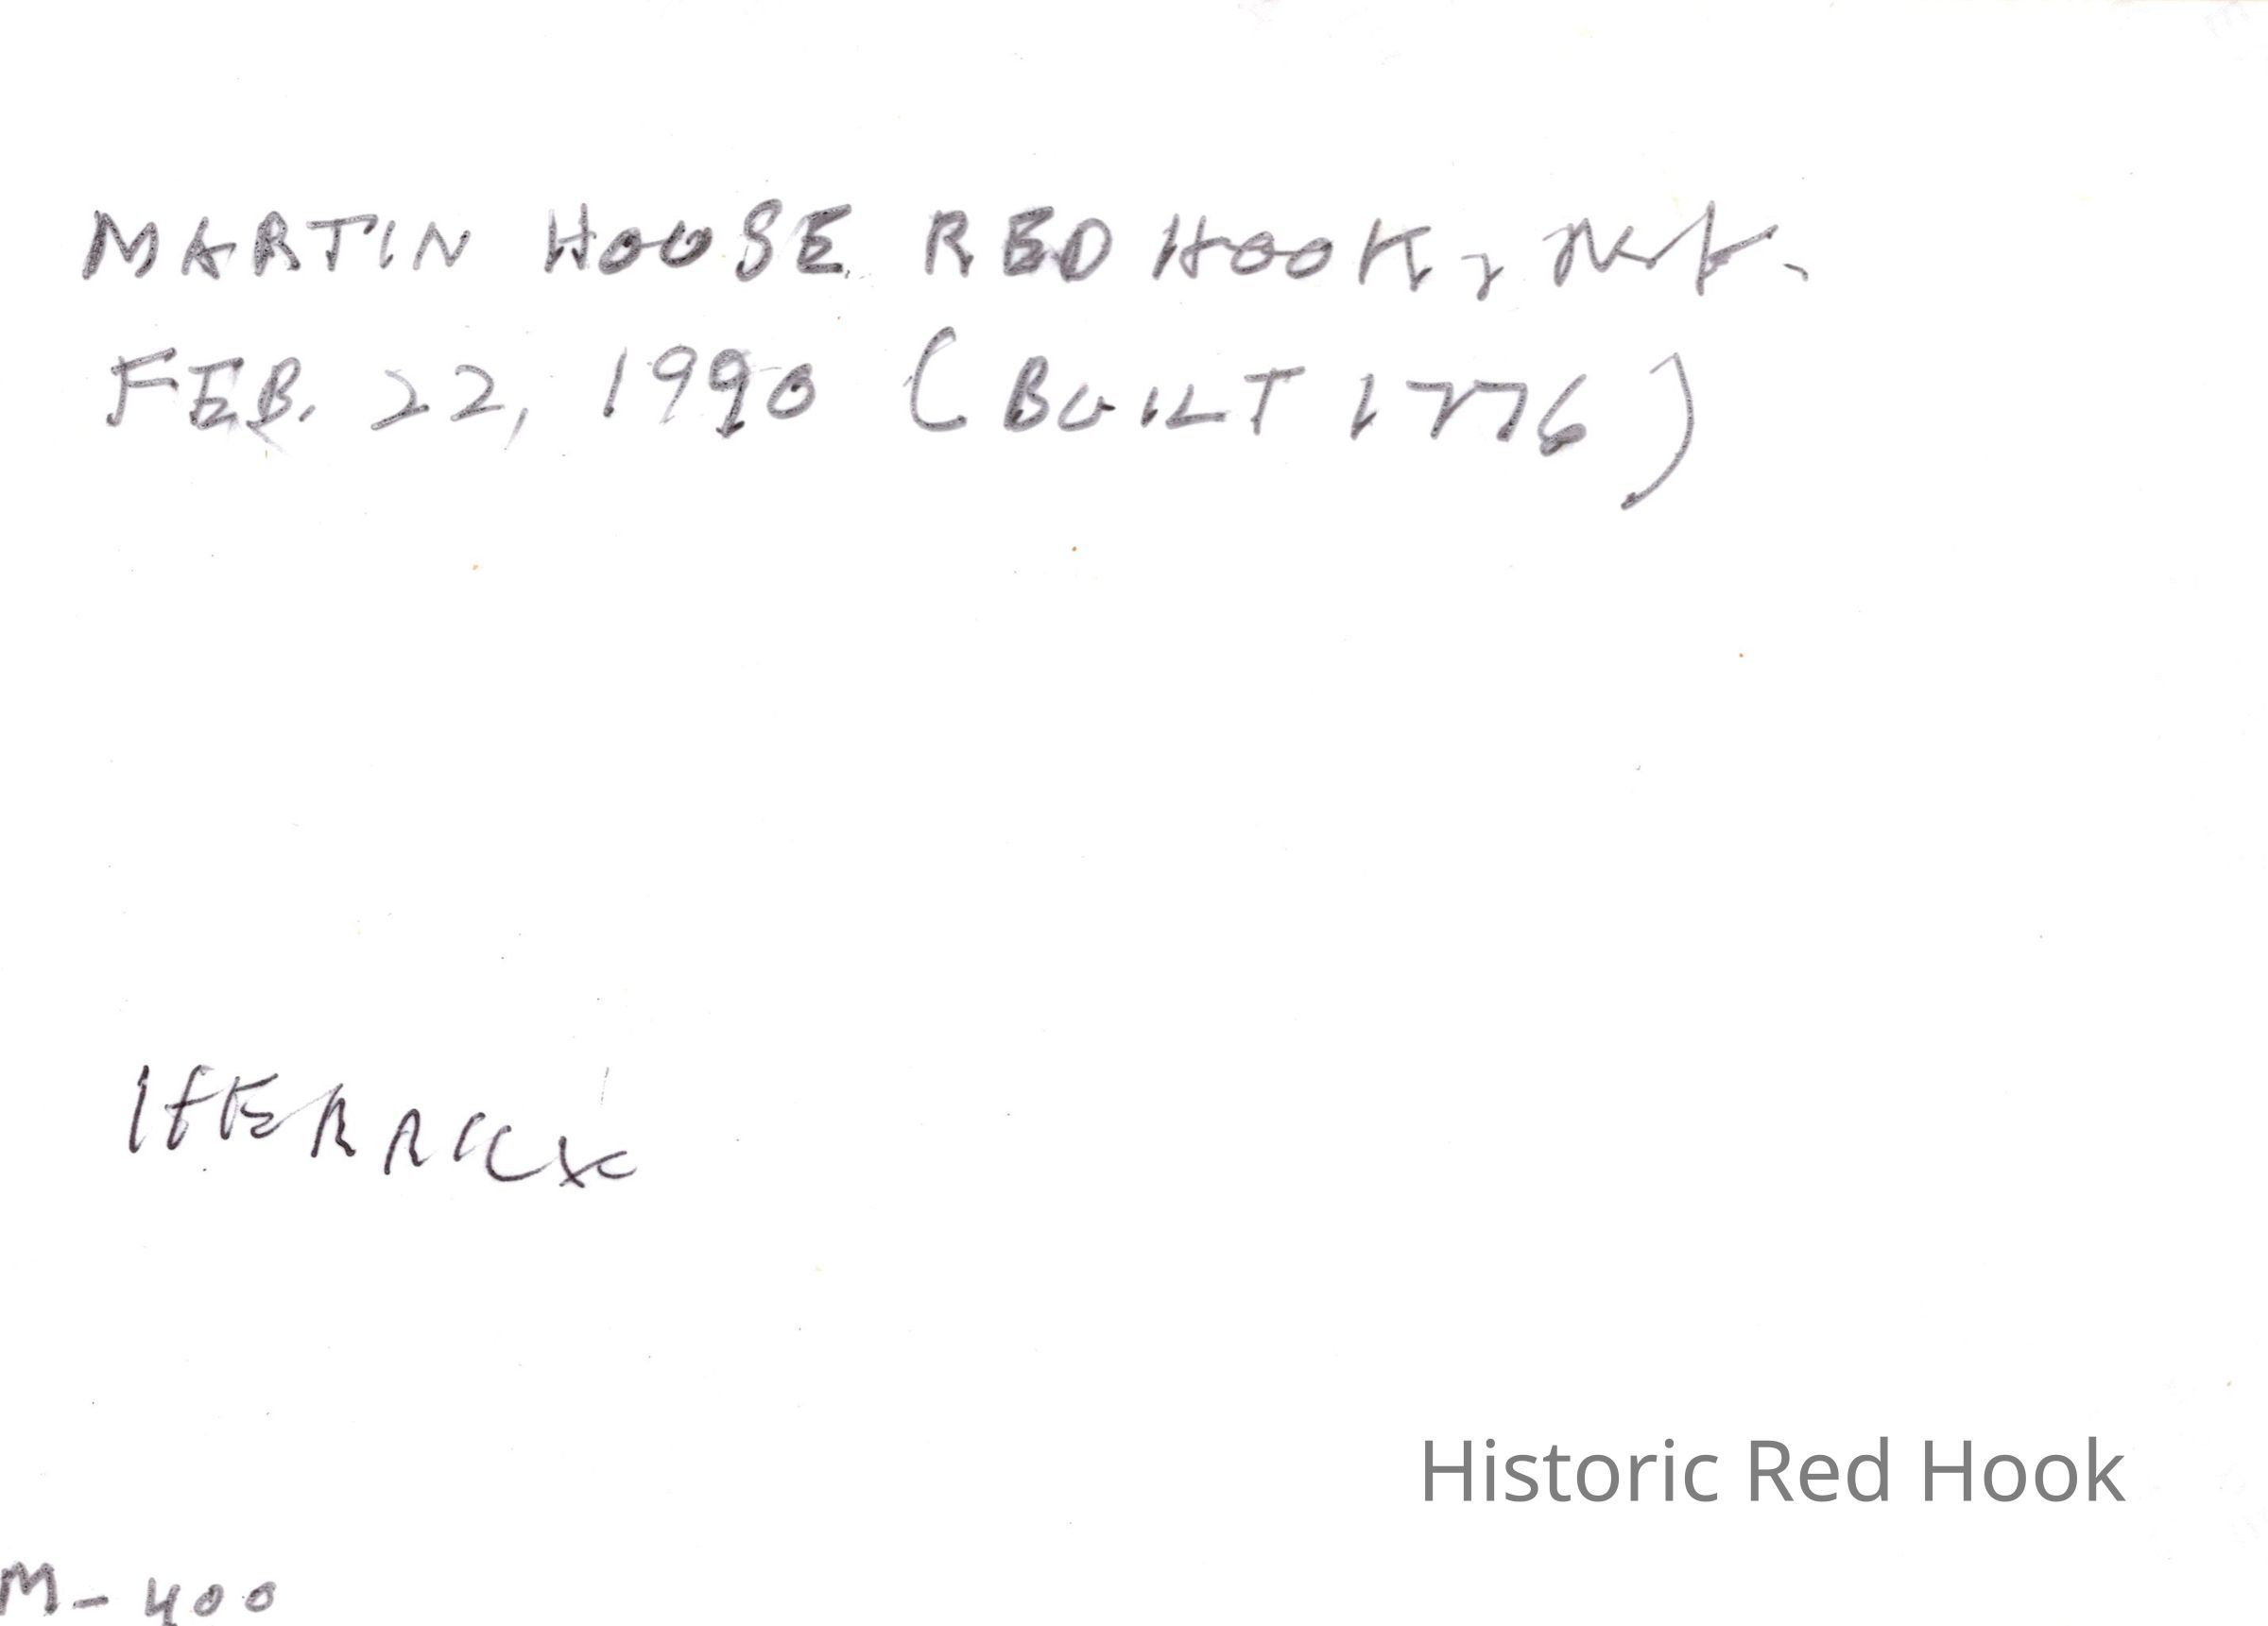 MARTIN HOUSE RED HOOK, N.Y.
FEB. 22, 1990 (BUILT 1776)
HERRICK
Historic Red Hook
M-400